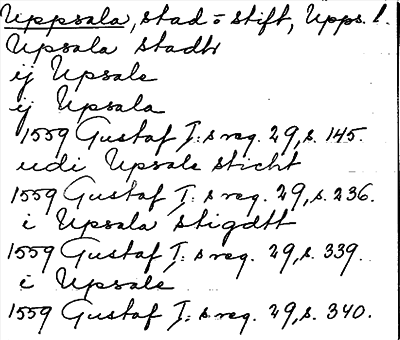 Uppsala, stad = stift, Upps. l.
Upsala stadh
ij Upsale
ij Upsala
1559 Gustaf I:s reg. 29, s. 145.
udi Upsale sticht
1559 Gustaf I:s reg. 29, s. 236.
i Upsala stigdtt
1559 Gustaf I:s reg. 29, s. 339.
i Upsale
1559 Gustaf I:s reg. 29, s. 340.